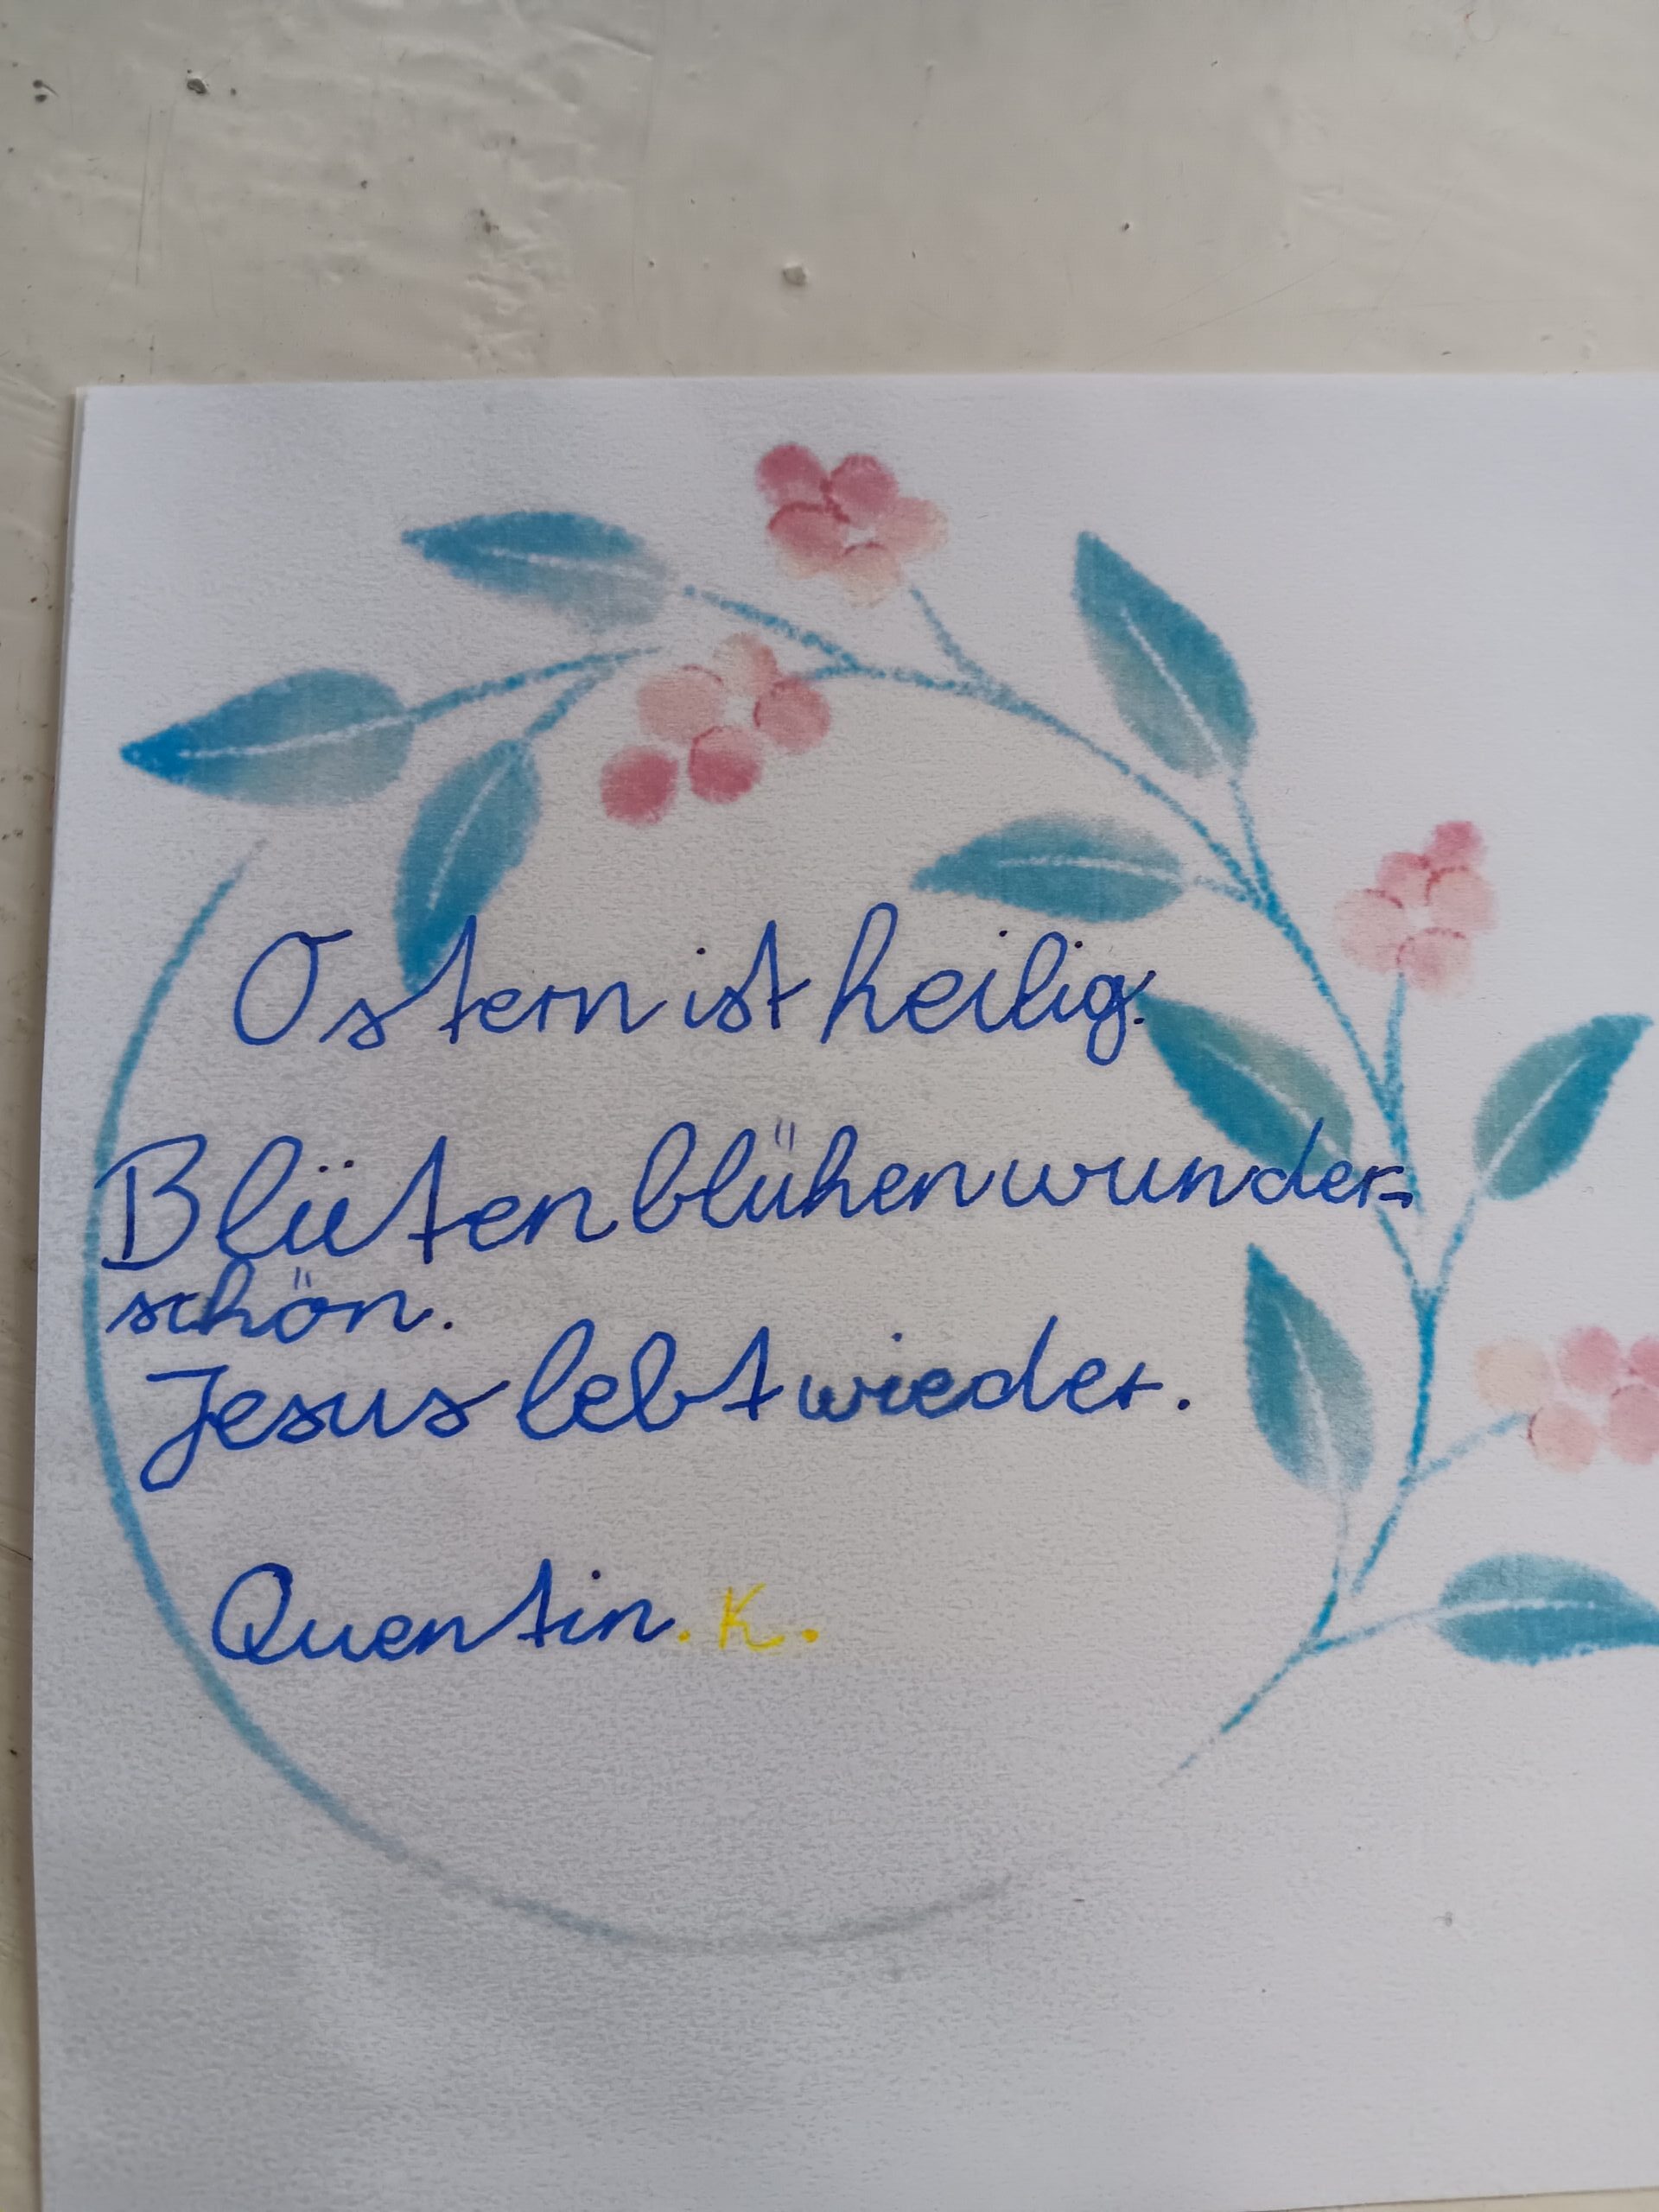 Ostern ist heilig.
Blüten blühen wunder=
schön.
Jesus lebt wieder.
Quentin. K.